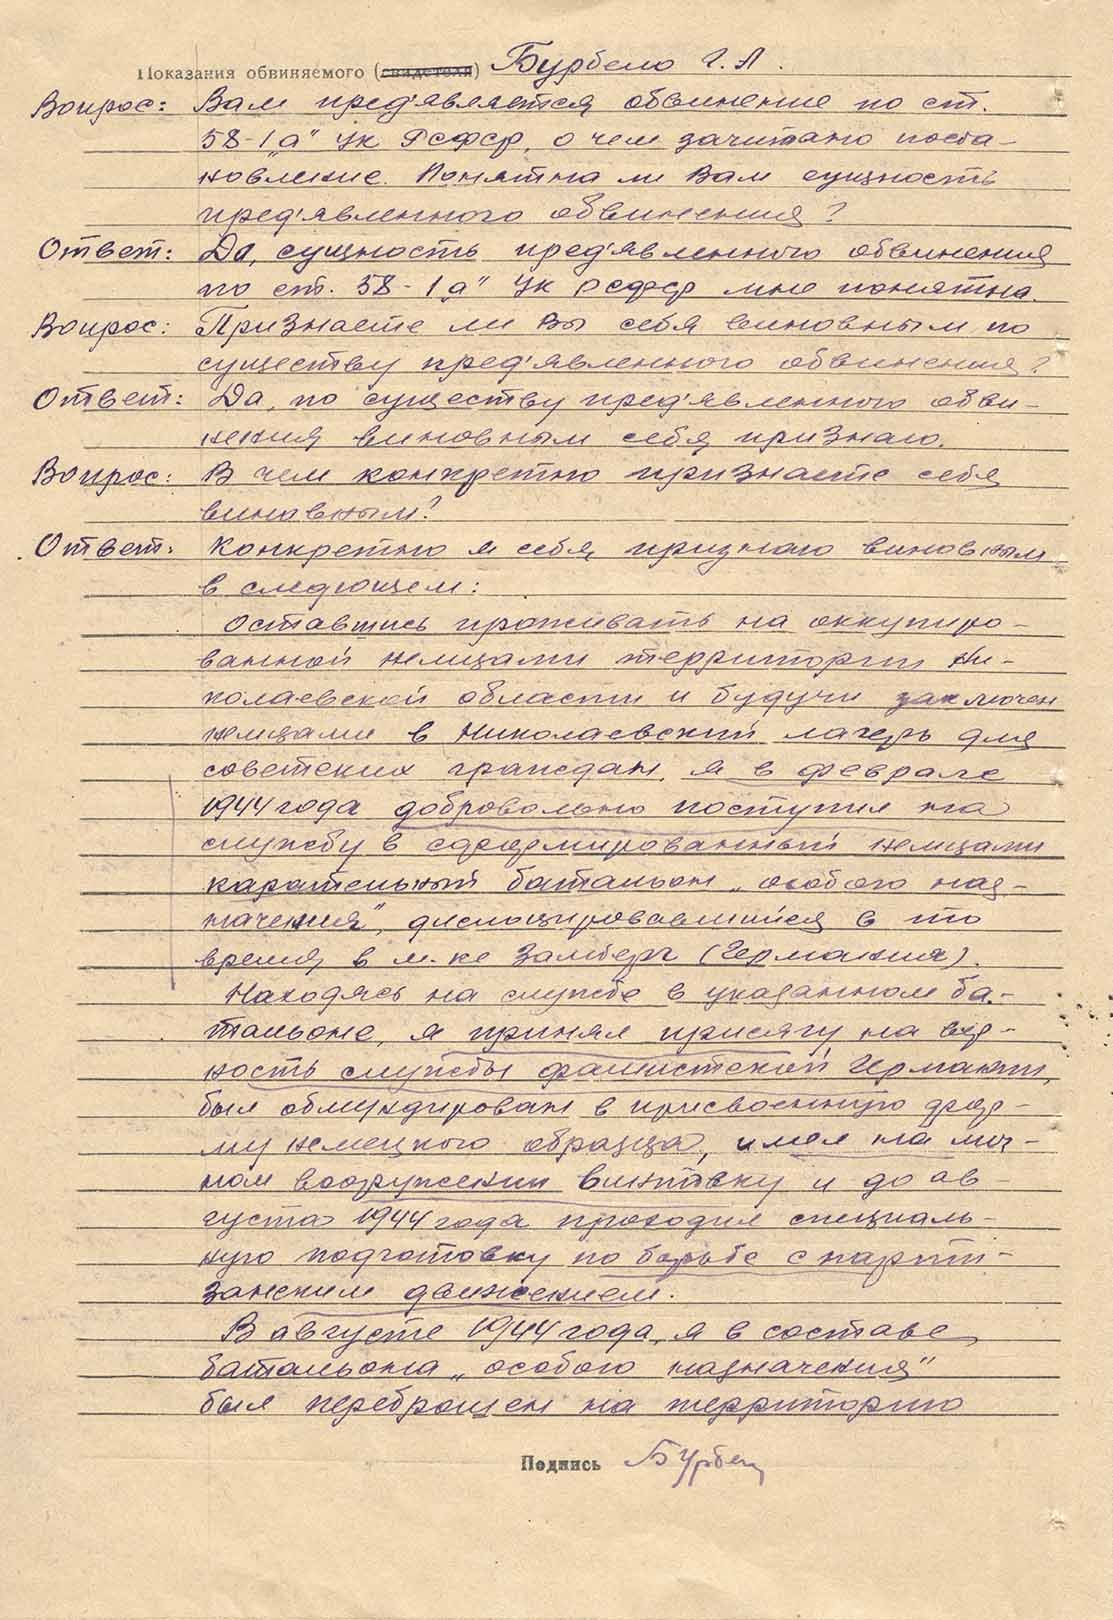 Показания обвиняемого (свидетеля) Бурбело Г. Л.
Вопрос: Вам пред'является обвинение по ст.
58-1„а" УК РСФСР, о чем зачитано поста-
новление. Понятна ли Вам сущность
пред'явленного обвинения?
Ответ: Да, сущность пред'явленного обвинения
по ст. 58-1„а" УК РСФСР мне понятна.
Вопрос: Признаете ли Вы себя виновным по
существу пред'явленного обвинения?
Ответ: Да, по существу пред'явленного обви-
нения виновным себя признаю.
Вопрос: В чем конкретно признаете себя
виновным?
Ответ: Конкретно я себя признаю виновным
в следующем:
Оставшись проживать на оккупиро-
ванной немцами территории Ни-
колаевской области и будучи заключен
немцами в Николаевский лагерь для
советских граждан, я в феврале
1944 года добровольно поступил на
службу в сформированный немцами
карательный батальон „особого наз-
начения", дислоцировавшийся в то
время в м-ке Замберг (Германия).
Находясь на службе в указанном ба-
тальоне, я принял присягу на вер-
ность службы фашистской Германии,
был обмундирован в присвоенную фор-
му немецкого образца, имел на лич-
ном вооружении винтовку и до ав-
густа 1944 года проходил специаль-
ную подготовку по борьбе с парти-
занским движением.
В августе 1944 года, я в составе
батальона „особого назначения"
был переброшен на территорию
Подпись Бурбел